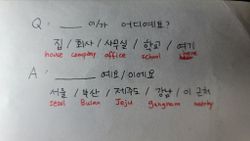 Q: ____ 이/가 어디예요?
집 / 회사 / 사무실 / 학교 / 여기
house company office school here
A: ____ 예요/이에요
서울 / 부산 / 제주도 / 강남 / 이 근처
Seoul Busan Jeju gangnam nearby